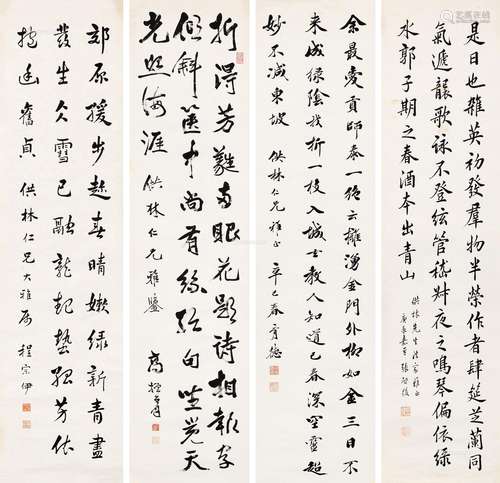 是日也雜英初發羣物半榮作者肆筵芝蘭同
氣遞襲歌詠不登絃管嵇叔夜之鳴琴偏依綠
水郭子期之春酒本出青山
供林先生法家雅正
庚辰嘉平
余最愛貢師泰一絕云擁湧金門外柳如金三日不
來成綠陰我折一枝入城去教人知道已春深空靈超
妙不減東坡 供林仁兄雅正 辛巳春
折得芳蕤兩眼花題詩相報字
傾斜篋中尚有絲綸句坐覺天
光照海涯 供林仁兄雅鑒 高振霄
郊原緩步趁春晴嫩綠新青盡
發生久雪已融龍起蟄孤芳依
舊貞 供林仁兄大雅屬 程宗伊